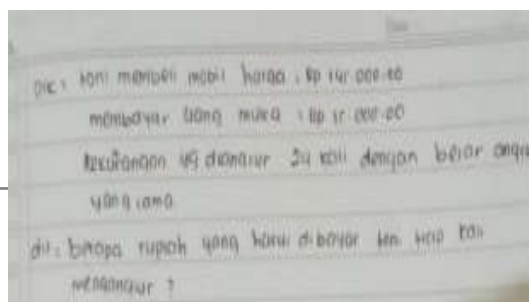 Dik : Toni membeli mobil harga : Rp
membayar uang muka : Rp
kekurangan yg diangsur 24 kali dengan besar angsu
yang sama
dit : berapa rupiah yang harus dibayar toni tiap kali
mengangsur ?